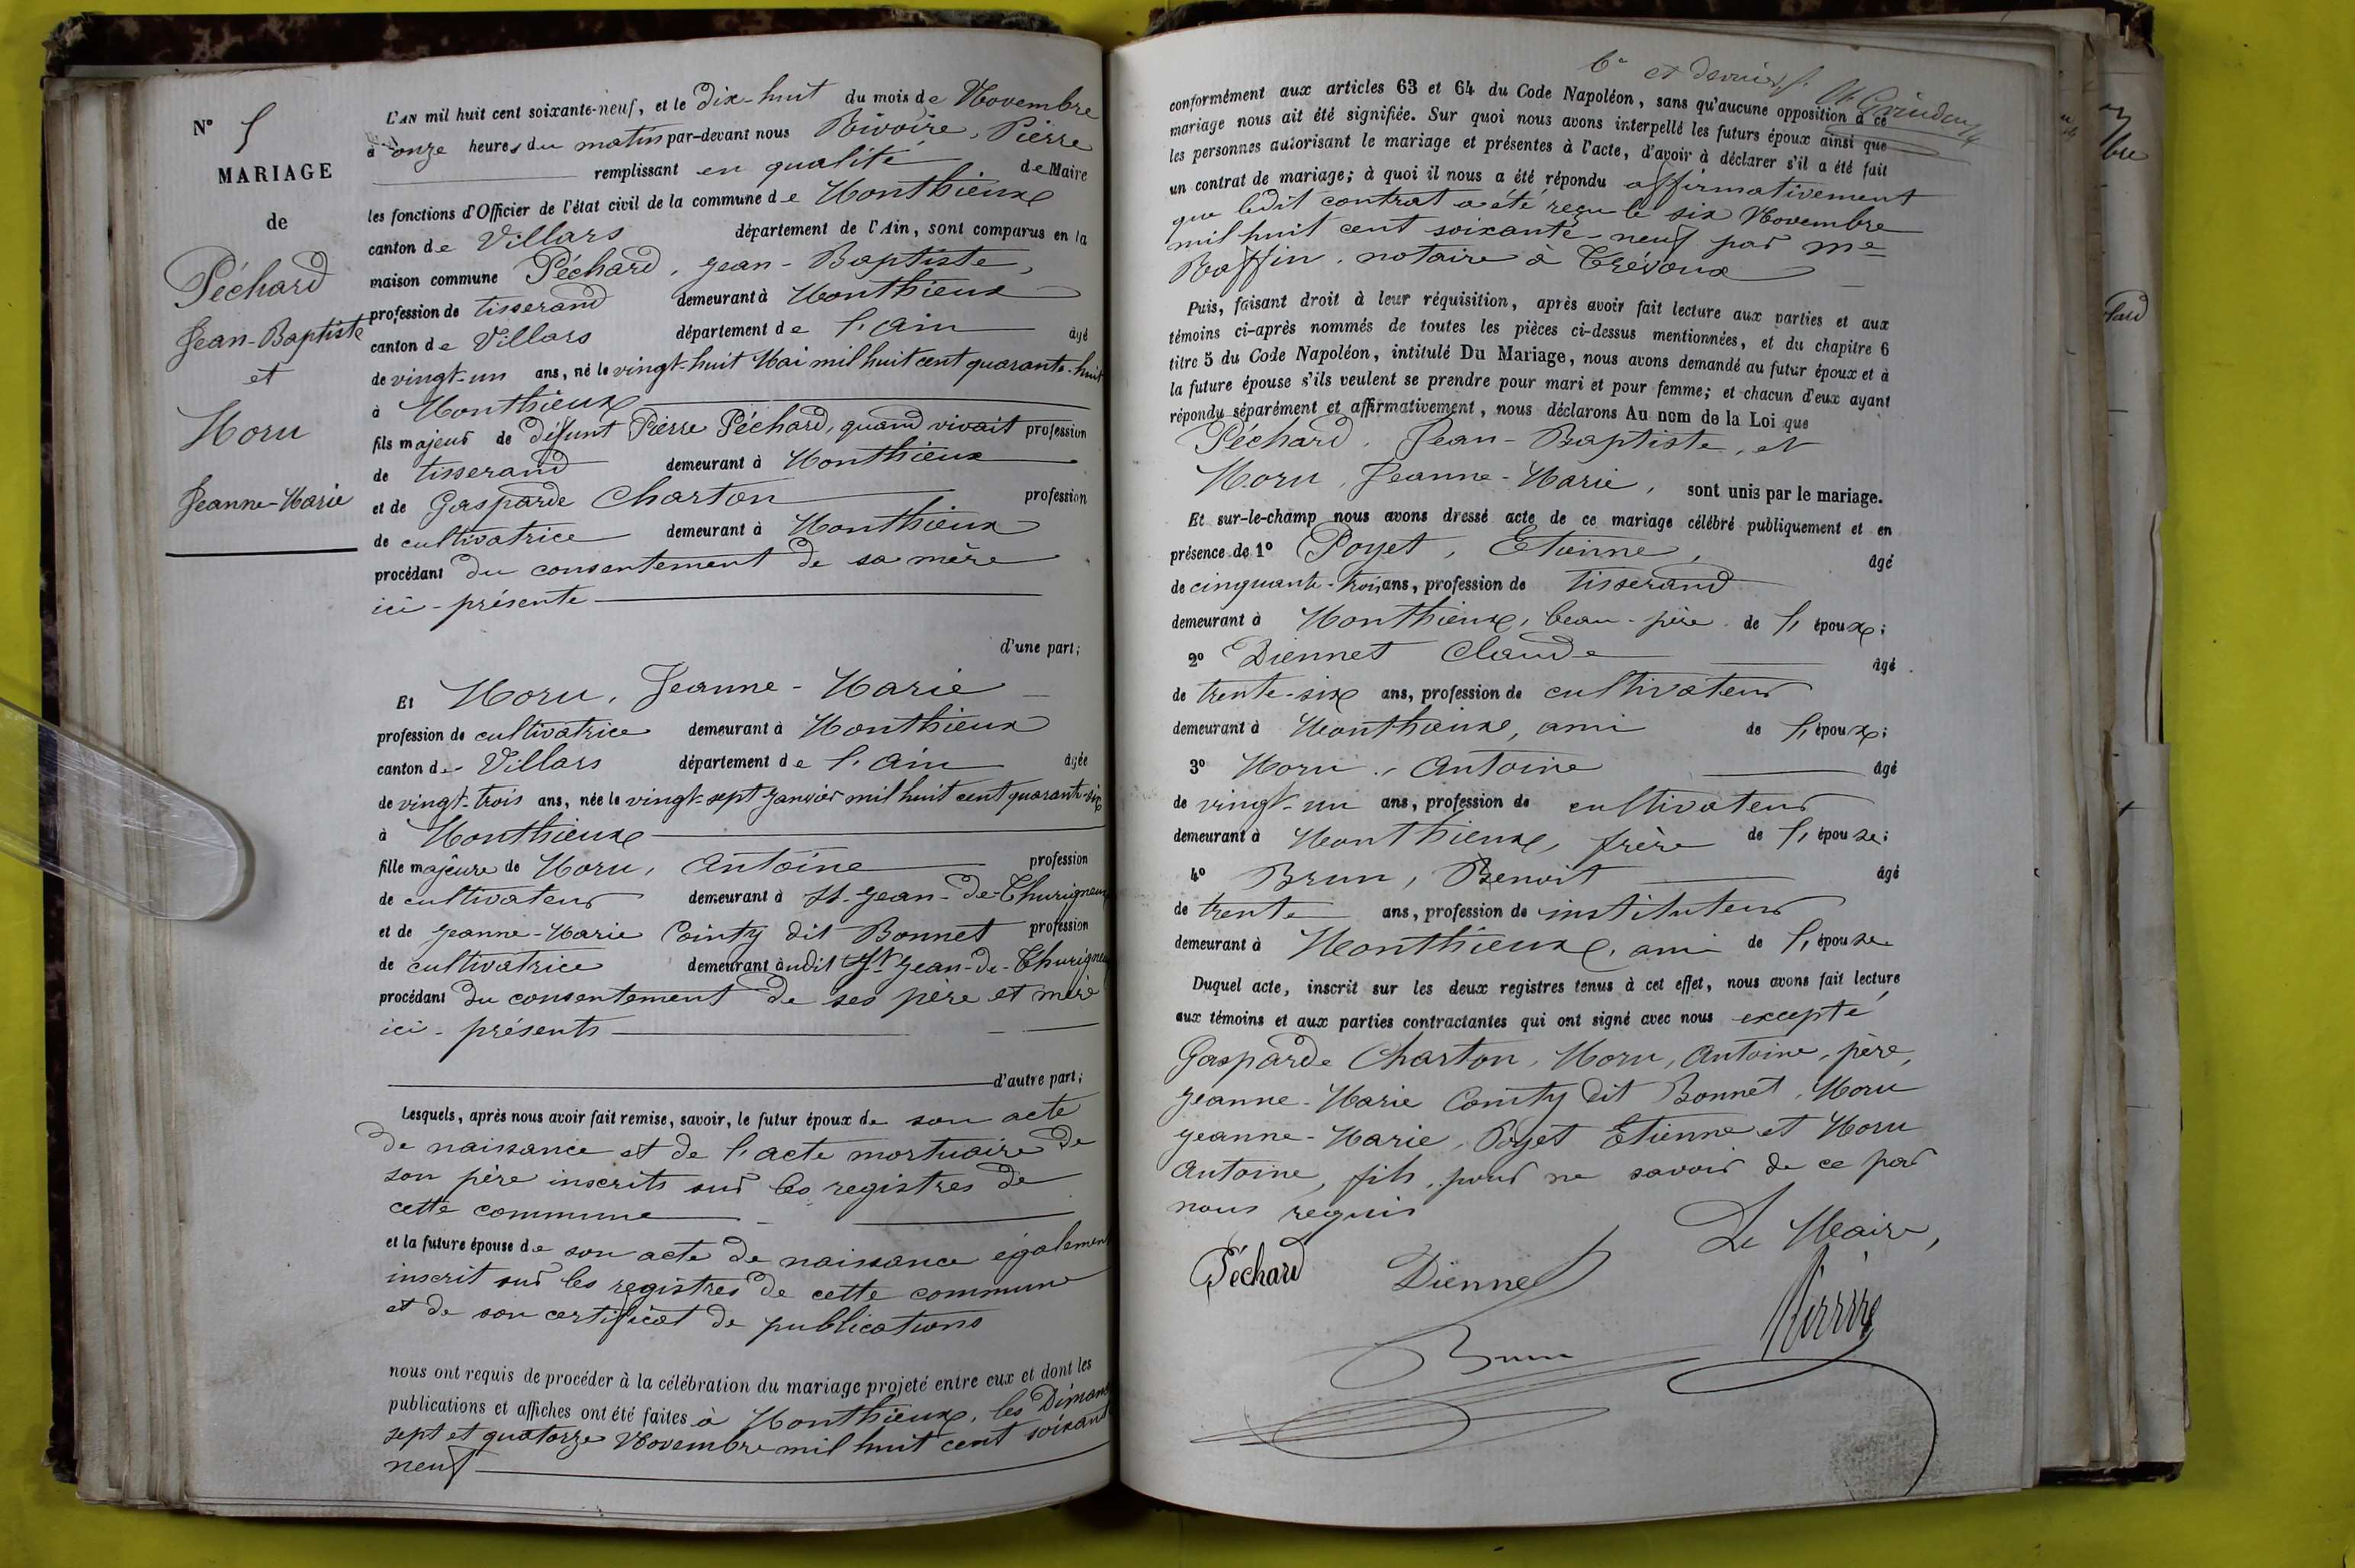 N° 5
MARIAGE
de
Péchard
Jean-Baptiste
et
Moru
Jeanne-Marie
L'AN mil huit cent soixante-neuf, et le Dix-huit du mois de Novembre
à onze heures du matin par-devant nous Rivoire, Pierre
remplissant en qualité de Maire
les fonctions d'Officier de l'état civil de la commune de Monthieux
canton de Villars département de l'Ain, sont comparus en la
maison commune Péchard, Jean-Baptiste,
profession de tisserand demeurant à Monthieux
canton de Villars département de l'Ain âgé
de vingt-un ans, né le vingt-huit Mai mil huit cent quarante-huit
à Monthieux
fils majeur de défunt Pierre Péchard, quand vivait profession
de tisserand demeurant à Monthieux
et de Gasparde Charton profession
de cultivatrice demeurant à Monthieux
procédant du consentement de sa mère
ici-présente
d'une part;
Et Moru, Jeanne-Marie
profession de cultivatrice demeurant à Monthieux
canton de Villars département de l'Ain âgée
de vingt-trois ans, née le vingt-sept Janvier mil huit cent quarante-six
à Monthieux
fille majeure de Moru, Antoine profession
de cultivateur demeurant à St-Jean-de-Thurigneux
et de Jeanne-Marie Cointy dit Bonnet profession
de cultivatrice demeurant audit St Jean-de-Thurigneux
procédant du consentement de ses père et mère
ici-présents
d'autre part;
Lesquels, après nous avoir fait remise, savoir, le futur époux de son acte
de naissance et de l'acte mortuaire de
son père inscrits sur les registres de
cette commune
et la future épouse de son acte de naissance également
inscrit sur les registres de cette commune
et de son certificat de publications
nous ont requis de procéder à la célébration du mariage projeté entre eux et dont les
publications et affiches ont été faites à Monthieux, les Diman
sept et quatorze Novembre mil huit cent soixant
neuf
6e et dernier f.
conformément aux articles 63 et 64 du Code Napoléon, sans qu'aucune opposition à ce
mariage nous ait été signifiée. Sur quoi nous avons interpellé les futurs époux ainsi que
les personnes autorisant le mariage et présentes à l'acte, d'avoir à déclarer s'il a été fait
un contrat de mariage; à quoi il nous a été répondu affirmativement
que ledit contrat a été reçu le six Novembre
mil huit cent soixante-neuf par Me
Raffin, notaire à Trévoux
Puis, faisant droit à leur réquisition, après avoir fait lecture aux parties et aux
témoins ci-après nommés de toutes les pièces ci-dessus mentionnées, et du chapitre 6
titre 5 du Code Napoléon, intitulé Du Mariage, nous avons demandé au futur époux et à
la future épouse s'ils veulent se prendre pour mari et pour femme; et chacun d'eux ayant
répondu séparément et affirmativement, nous déclarons Au nom de la Loi que
Péchard, Jean-Baptiste, et
Moru, Jeanne-Marie, sont unis par le mariage.
Et sur-le-champ nous avons dressé acte de ce mariage célébré publiquement et en
présence de 1° Poyet, Etienne, âgé
de cinquante-trois ans, profession de tisserand
demeurant à Monthieux, beau-père de l'époux;
2° Diennet Claude âgé
de trente-six ans, profession de cultivateur
demeurant à Monthieux, ami de l'époux;
3° Moru, Antoine âgé
de vingt-un ans, profession de cultivateur
demeurant à Monthieux, frère de l'épouse;
4° Brun, Benoit âgé
de trente ans, profession de instituteur
demeurant à Monthieux, ami de l'épouse
Duquel acte, inscrit sur les deux registres tenus à cet effet, nous avons fait lecture
aux témoins et aux parties contractantes qui ont signé avec nous excepté
Gasparde Charton, Moru, Antoine, père,
Jeanne-Marie Cointy dit Bonnet, Moru
Jeanne-Marie, Poyet Etienne et Moru
Antoine, fils, pour ne savoir de ce par
nous requis
Le Maire,
Péchard Diennet
Rivoire
Brun